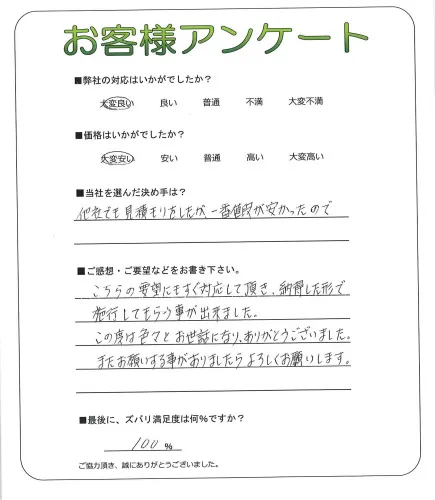 お客様アンケート
■弊社の対応はいかがでしたか？
大変良い 良い 普通 不満 大変不満
■価格はいかがでしたか？
大変安い 安い 普通 高い 大変高い
■当社を選んだ決め手は？
他社でも見積もりをしたが、一番値段が安かったので
■ご感想・ご要望などをお書き下さい。
こちらの要望にもすぐ対応して頂き、納得した形で
施行してもらう事が出来ました。
この度は色々とお世話になり、ありがとうございました。
またお願いする事がありましたらよろしくお願いします。
■最後に、ズバリ満足度は何%ですか？
100 %
ご協力頂き、誠にありがとうございました。